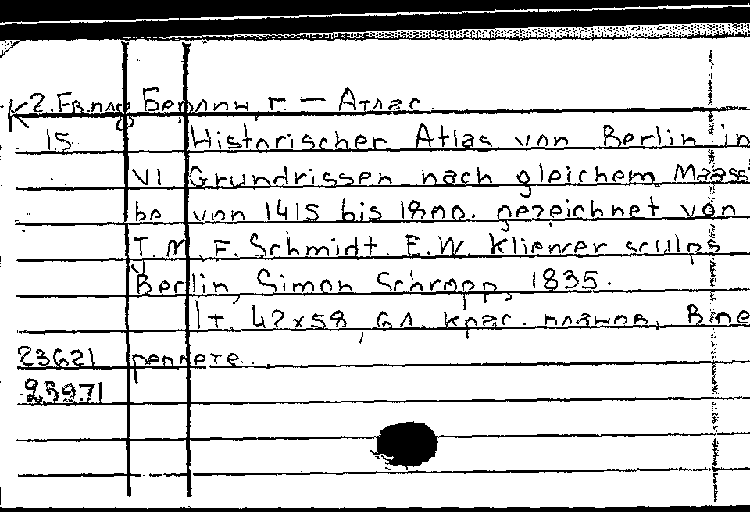 К2.Гв.плд Берлин, г. — Атлас
15 Historischer Atlas von Berlin in
VI Grundrissen nach gleichem Maass
be von 1415 bis 1800. gezeichnet von
J. M. F. Schmidt. E.W. Kliewer sculps
Berlin, Simon Schropp, 1835.
1 т. 42x58, 6л. крас. планов, В пе
23621 реплете.
25971